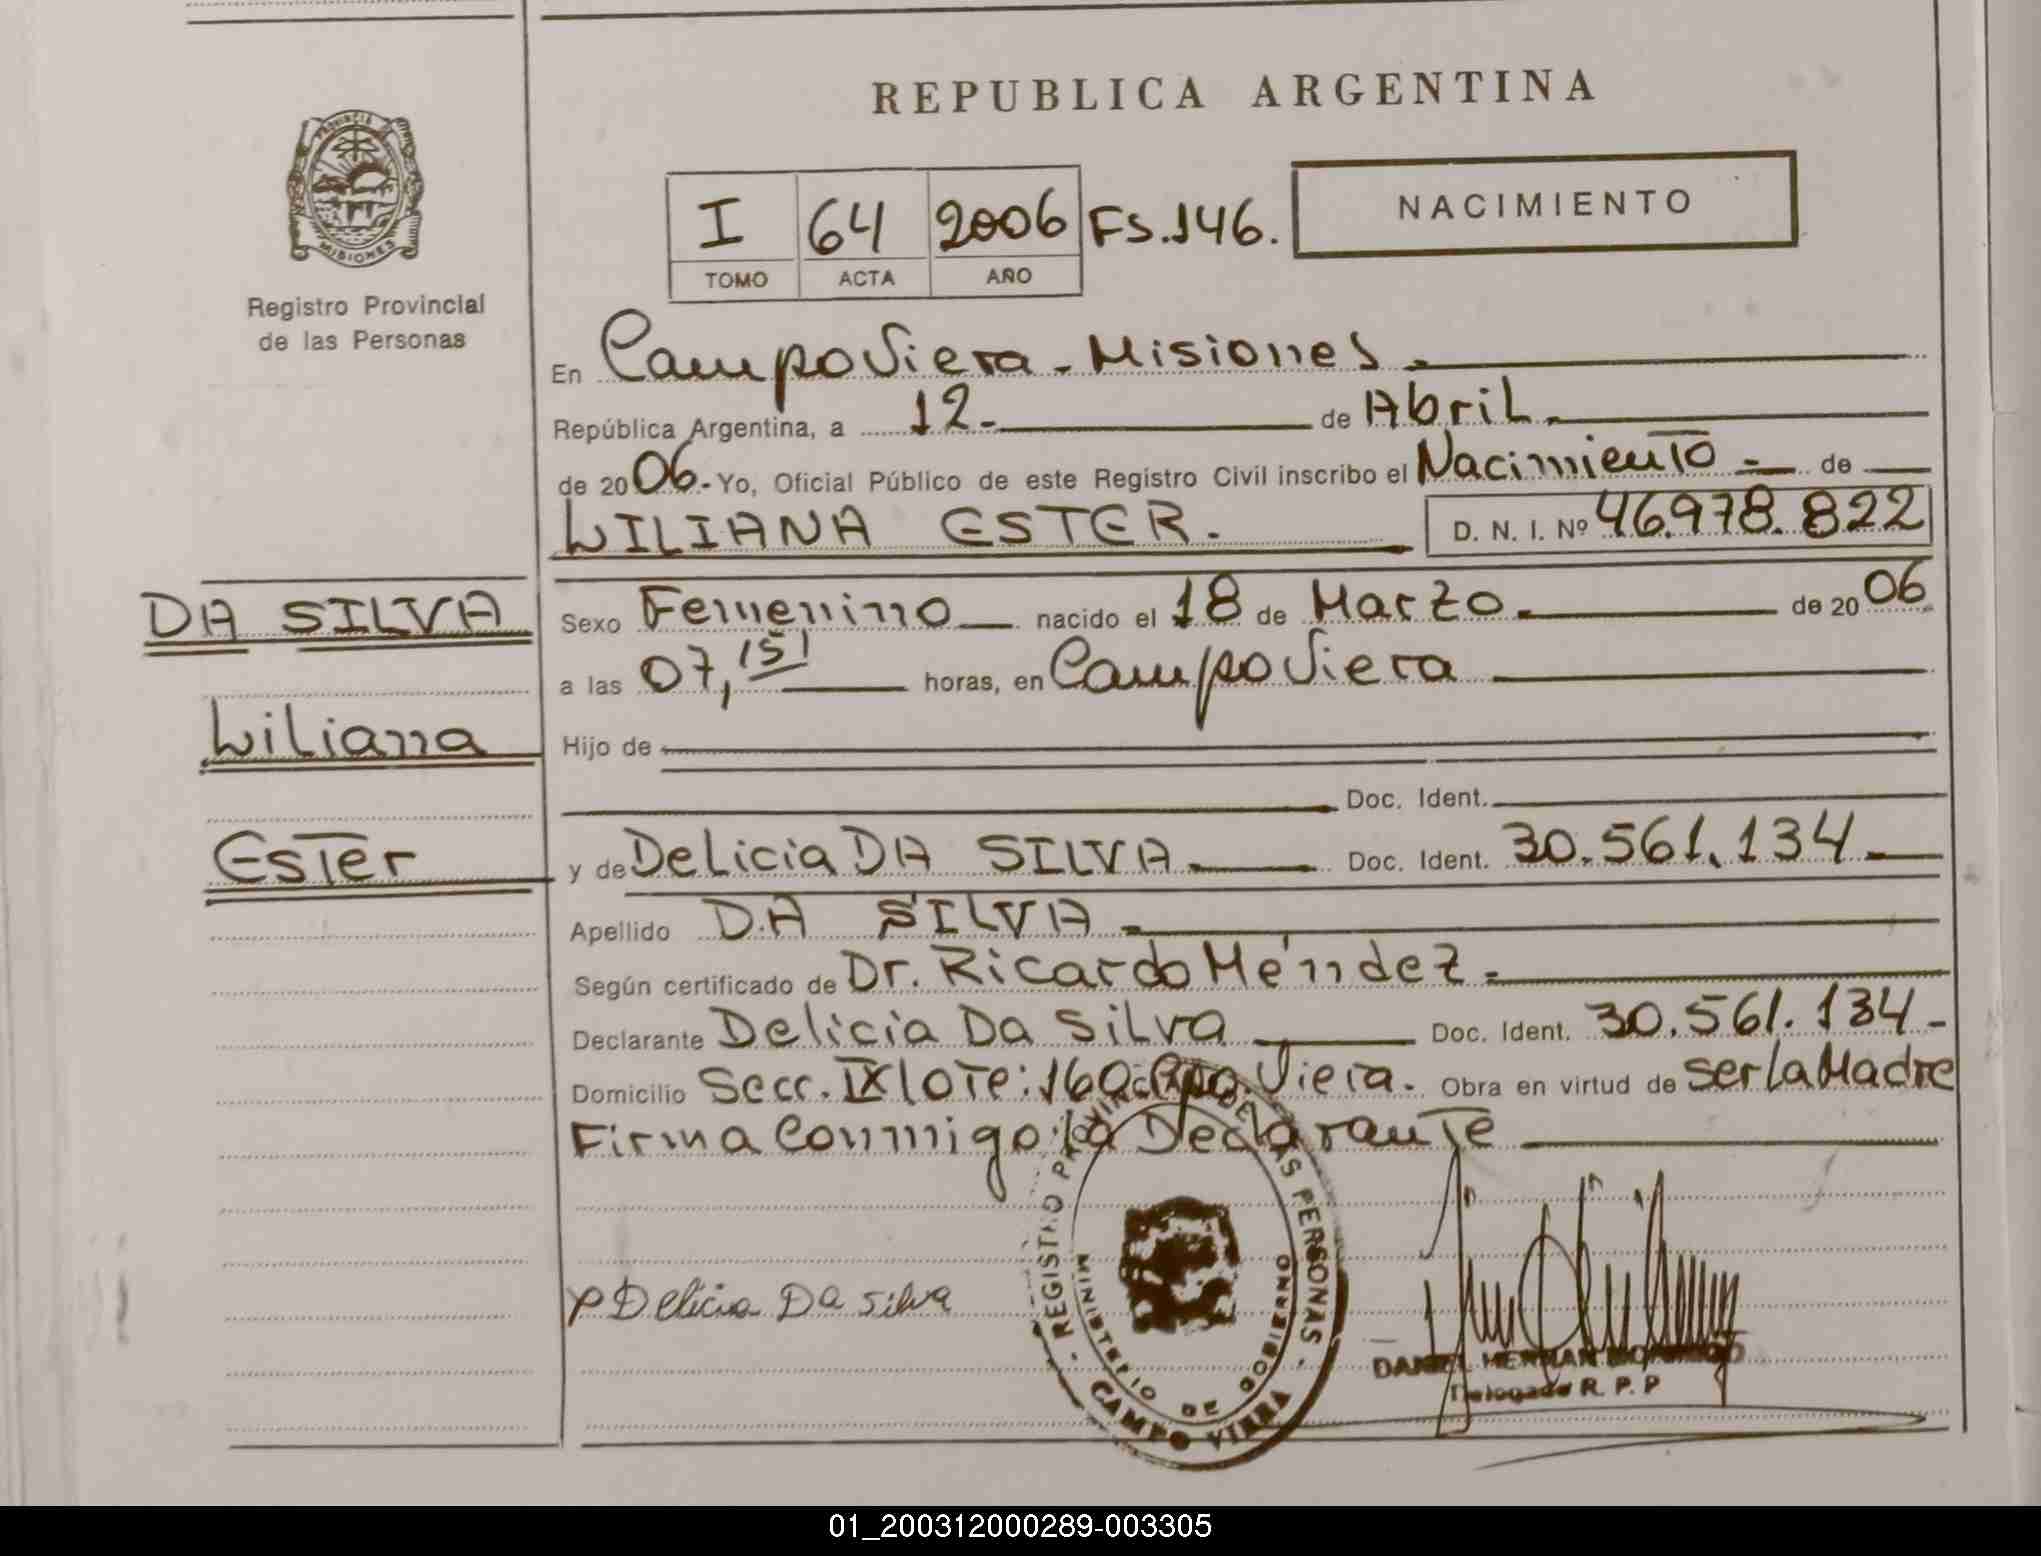 REPUBLICA ARGENTINA
PROVINCIA DE
MISIONES
Registro Provincial
de las Personas
I 64 2006 FS.146.
TOMO ACTA AÑO
NACIMIENTO
En Campo Viera - Misiones.
República Argentina, a 12- de Abril.
de 2006.- Yo, Oficial Público de este Registro Civil inscribo el Nacimiento - de
WILIANA ESTER. D. N. I. Nº 46.978.822
DA SILVA
Wiliana
Ester
Sexo Femenino nacido el 18 de Marzo. de 2006
a las 07,15' horas, en Campo Viera
Hijo de
Doc. Ident.
y de Delicia DA SILVA. Doc. Ident. 30.561.134.-
Apellido DA SILVA.
Según certificado de Dr. Ricardo Méndez.
Declarante Delicia Da Silva Doc. Ident. 30.561.134-
Domicilio Secc. IX lote: 160 Viera. Obra en virtud de ser la Madre
Firma Conmigo: la Declarante
x Delicia Da silva
REGISTRO PROVINCIAL DE LAS PERSONAS
MINISTERIO DE GOBIERNO
CAMPO VIERA
DANIEL HERNAN
Delegado R. P. P
01_200312000289-003305